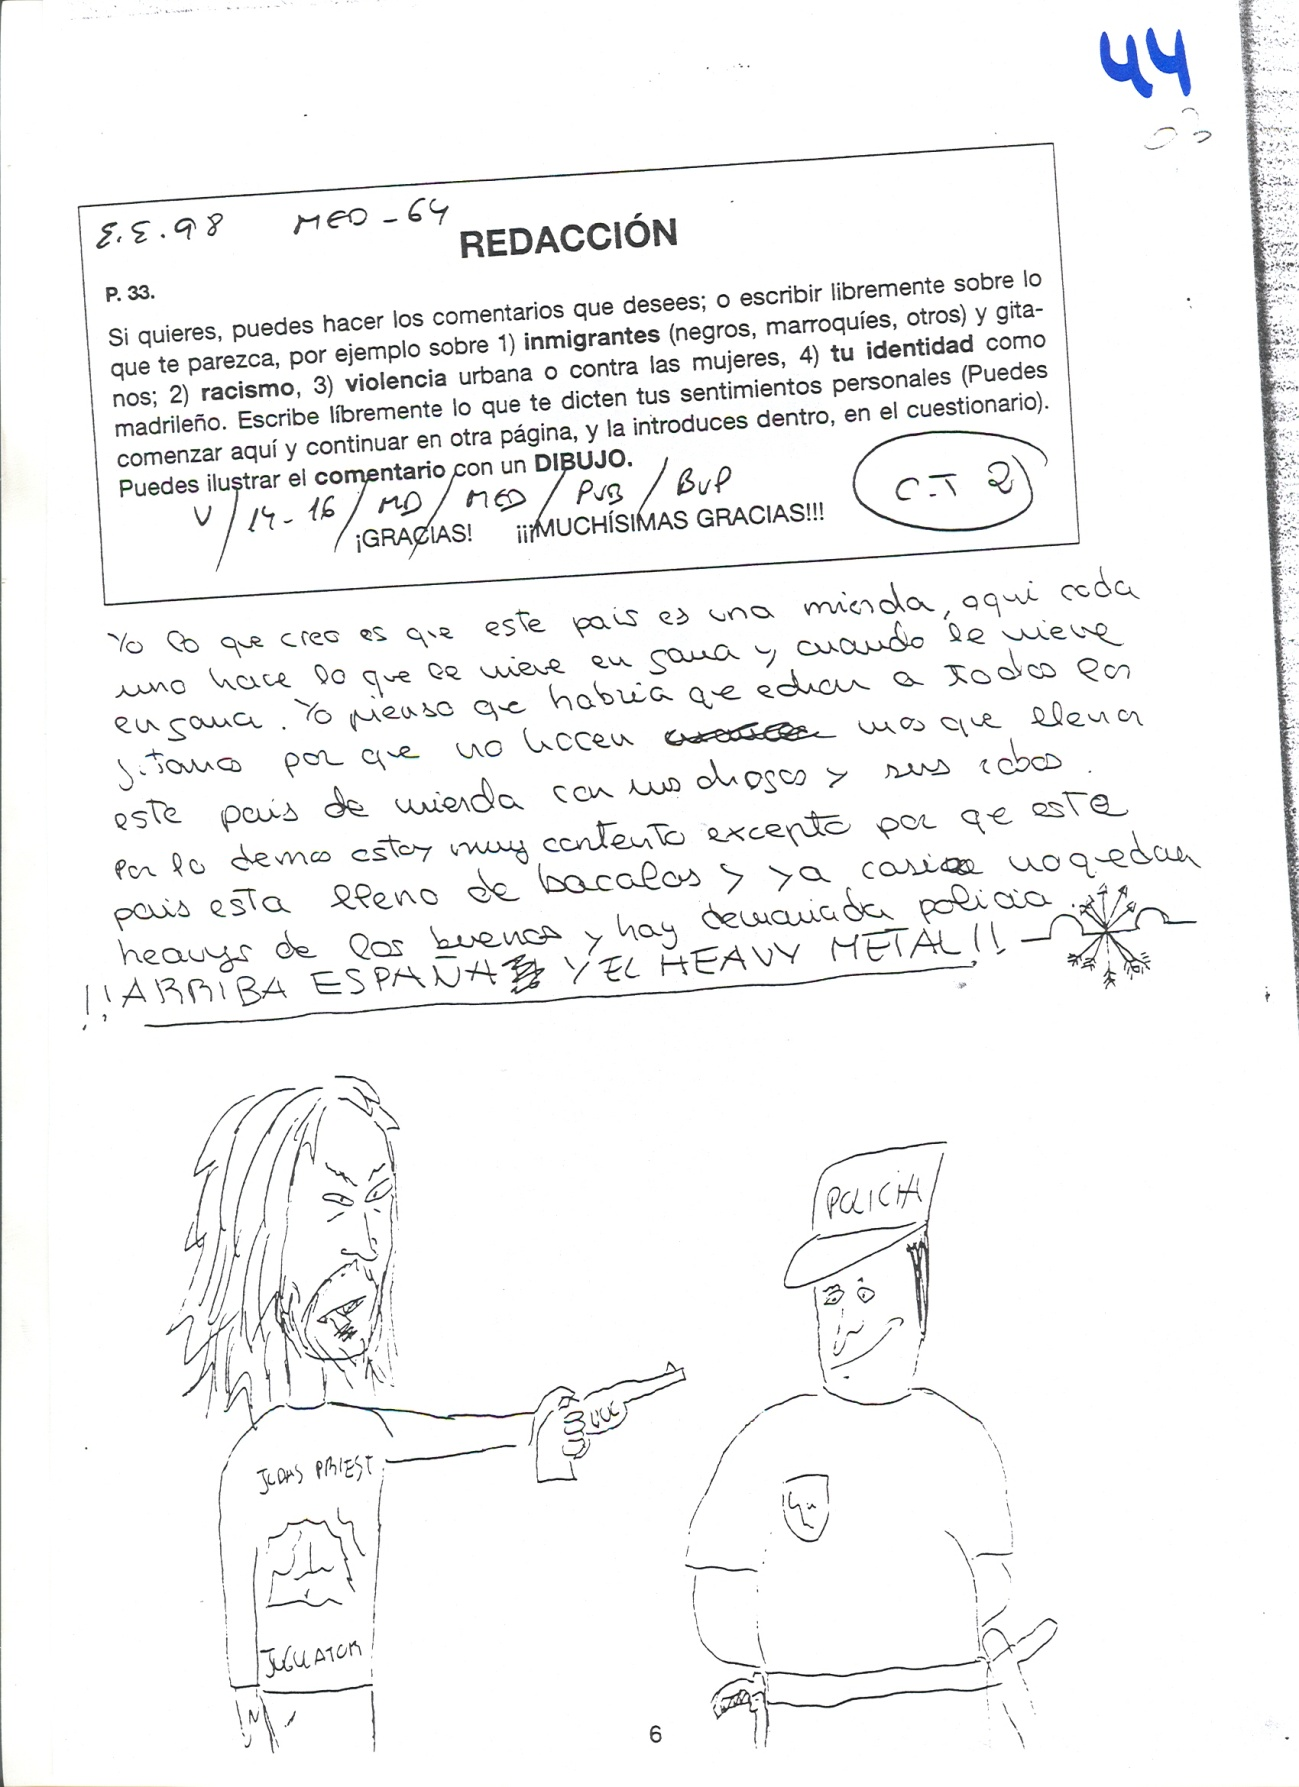 44
E.E.98 MED-64
REDACCIÓN
P. 33.
Si quieres, puedes hacer los comentarios que desees; o escribir libremente sobre lo
que te parezca, por ejemplo sobre 1) inmigrantes (negros, marroquíes, otros) y gita-
nos; 2) racismo, 3) violencia urbana o contra las mujeres, 4) tu identidad como
madrileño. Escribe líbremente lo que te dicten tus sentimientos personales (Puedes
comenzar aquí y continuar en otra página, y la introduces dentro, en el cuestionario).
Puedes ilustrar el comentario con un DIBUJO.
V / 14-16 / MD / MED / PUB / BUP
C.T 2
¡GRACIAS! ¡¡¡MUCHÍSIMAS GRACIAS!!!
Yo lo que creo es que este pais es una mierda, aqui cada
uno hace lo que le vieve en gana y cuando le vieve
en gana. Yo pienso que habria que echar a todos los
jitanos por que no hacen mas que llenar
este pais de mierda con sus drogas y sus robos.
Por lo demas estoy muy contento excepto por qe este
pais esta lleno de bacalas y ya casi no quedan
heavys de los buenos y hay demasiada policia.
¡¡ARRIBA ESPAÑA Y EL HEAVY METAL!!
POLICIA
JUDAS PRIEST
JUGULATOR
6